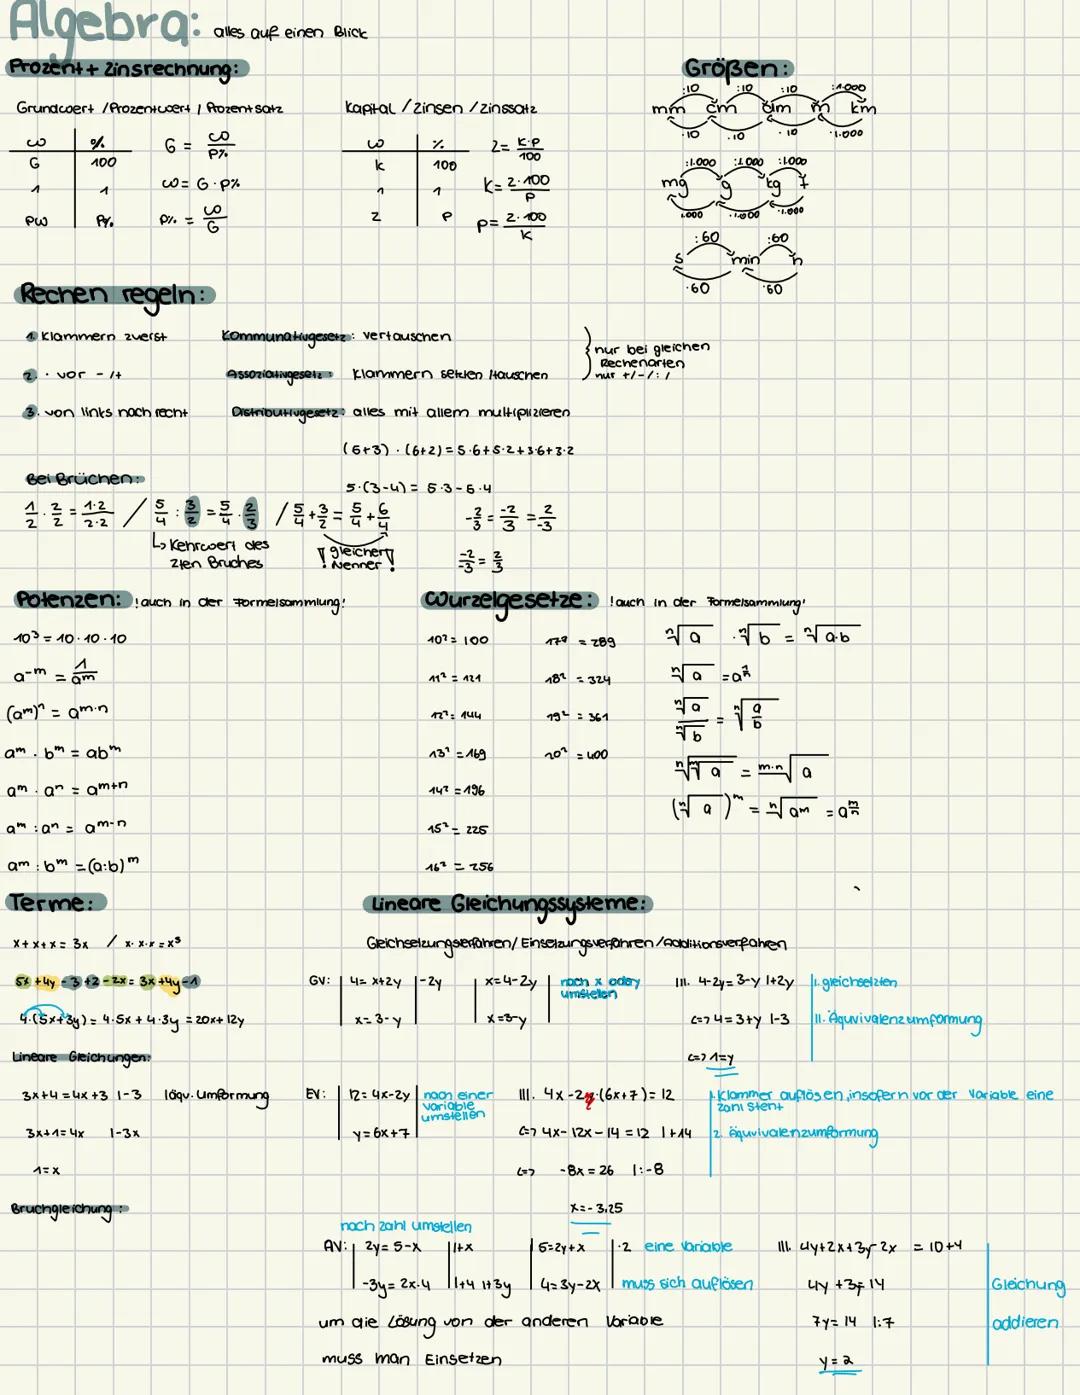 Algebra: alles auf einen Blick
Prozent + Zinsrechnung:
Grundwert / Prozentwert / Prozentsatz
W | %
G | 100
1 | 1
PW | P%.
G = W/P%
W = G · P%
P% = W/G
Kapital / Zinsen / Zinssatz
W | %
K | 100
1 | 1
Z | P
Z = K·P/100
K = Z·100/P
P = Z·100/K
Größen:
:10 :10 :10 :1.000
mm cm dm m km
·10 ·10 ·10 ·1.000
:1.000 :1.000 :1.000
mg g kg t
1.000 ·1.000 ·1.000
:60 :60
s min h
·60 ·60
Rechen regeln:
1. Klammern zuerst
2. · vor - /+
3. von links nach recht
Kommunativgesetz: vertauschen
Assoziativgesetz: Klammern setzten /tauschen
Distributivgesetz: alles mit allem multiplizieren
nur bei gleichen
Rechenarten
nur +/-/:/
(5+3) · (6+2) = 5·6+5·2+3·6+3·2
5·(3-4) = 5·3-5·4
Bei Brüchen:
1/2 · 2/2 = 1·2/2·2 / 5/4 : 3/2 = 5/4 · 2/3 / 5/4 + 3/2 = 5/4 + 6/4
-2/3 = -2/3 = 2/-3
↳ Kehrwert des
2ten Bruches
! gleicher !
Nenner
-2/-3 = 2/3
Potenzen: !auch in der Formelsammlung!
10³ = 10·10·10
a⁻ᵐ = 1/aᵐ
(aᵐ)ⁿ = aᵐ·ⁿ
aᵐ · bᵐ = abᵐ
aᵐ · aⁿ = aᵐ⁺ⁿ
aᵐ : aⁿ = aᵐ⁻ⁿ
aᵐ : bᵐ = (a:b)ᵐ
Wurzelgesetze: !auch in der Formelsammlung!
10² = 100
11² = 121
12² = 144
13² = 169
14² = 196
15² = 225
16² = 256
17² = 289
18² = 324
19² = 361
20² = 400
ⁿ√a · ⁿ√b = ⁿ√a·b
ⁿ√a = a^(1/n)
ⁿ√a / ⁿ√b = ⁿ√(a/b)
ⁿ√ᵐ√a = ᵐ·ⁿ√a
(ⁿ√a)ᵐ = ⁿ√aᵐ = a^(m/n)
Terme:
x+x+x = 3x / x·x·x = x³
5x +4y -3 +2 -2x = 3x +4y -1
4·(5x+3y) = 4·5x + 4·3y = 20x+12y
Lineare Gleichungen:
3x+4 = 4x+3 |-3 |äqv. Umformung
3x+1 = 4x |-3x
1 = x
Bruchgleichung:
Lineare Gleichungssysteme:
Gleichsetzungsverfahren/ Einsetzungsverfahren /Additionsverfahren
GV: | 4 = x+2y | -2y
| x = 3-y |
| x = 4-2y |
| x = 3-y |
nach x oder y
umstellen
III. 4-2y = 3-y |+2y
<=> 4 = 3+y |-3
<=> 1 = y
I. gleichsetzten
II. Äquvivalenzumformung
EV: | 12 = 4x-2y |
| y = 6x+7 |
nach einer
Variable
umstellen
III. 4x -2y·(6x+7) = 12
<=> 4x - 12x - 14 = 12 |+14
<=> -8x = 26 |:-8
x = -3,25
1. Klammer auflösen, insofern vor der Variable eine
Zahl steht
2. Äquvivalenzumformung
nach zahl umstellen
AV: | 2y = 5-x | |+x
| -3y = 2x·4 | |+4 |+3y
| 5 = 2y+x | ·2
| 4 = 3y-2x |
eine Variable
muss sich auflösen
III. 4y+2x+3y-2x = 10+4
4y + 3y = 14
7y = 14 |:7
y = 2
Gleichung
addieren
um die Lösung von der anderen Variable
muss man Einsetzen